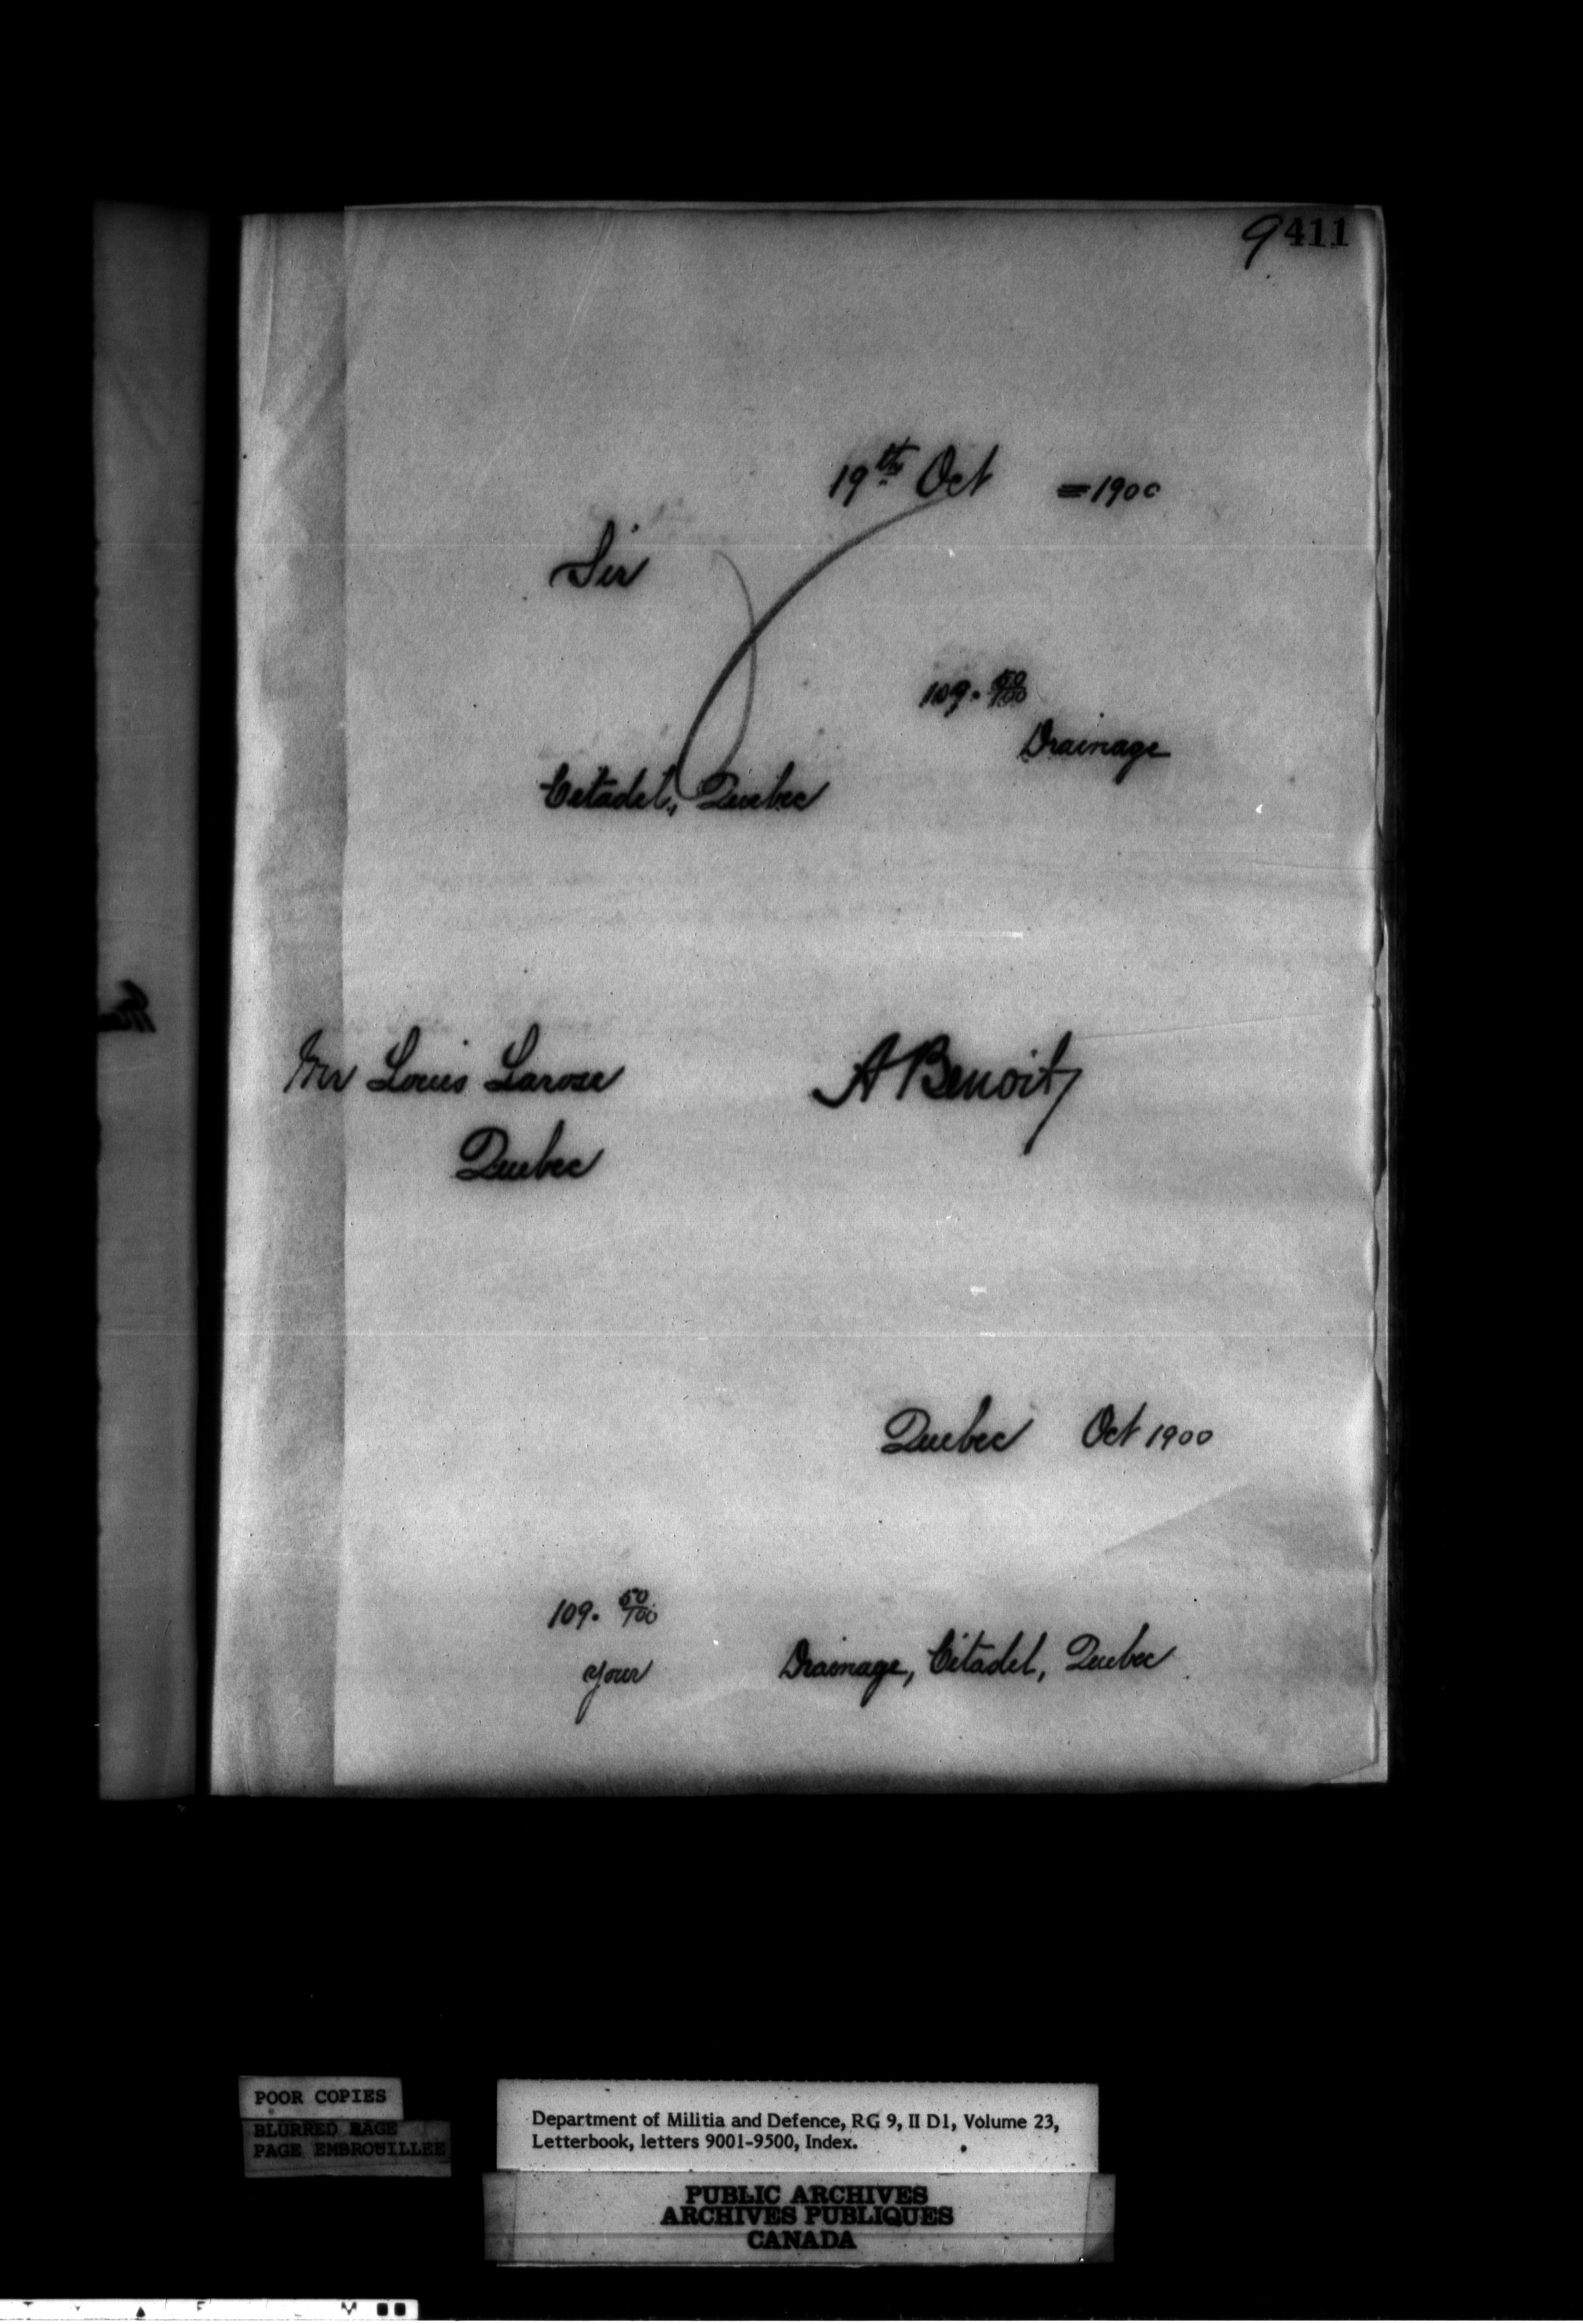 9411
19th Oct = 1900
Sir
109. 50/100
Drainage
Citadel, Quebec
Mr Louis Larose
A Benoit
Quebec
Quebec Oct 1900
109. 50/100
your Drainage, Citadel, Quebec
POOR COPIES
BLURRED PAGE
PAGE EMBROUILLEE
Department of Militia and Defence, RG 9, II D1, Volume 23,
Letterbook, letters 9001-9500, Index.
PUBLIC ARCHIVES
ARCHIVES PUBLIQUES
CANADA